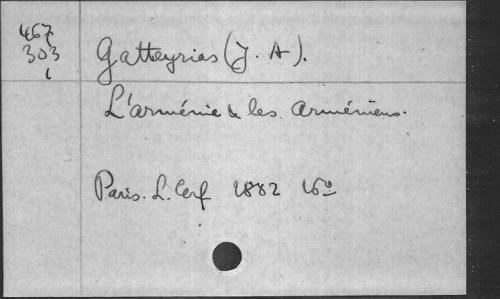 467
303
1
Gatteyrias (J. A).
L'arménie & les arméniens.
Paris. L. Cerf 1882 16º